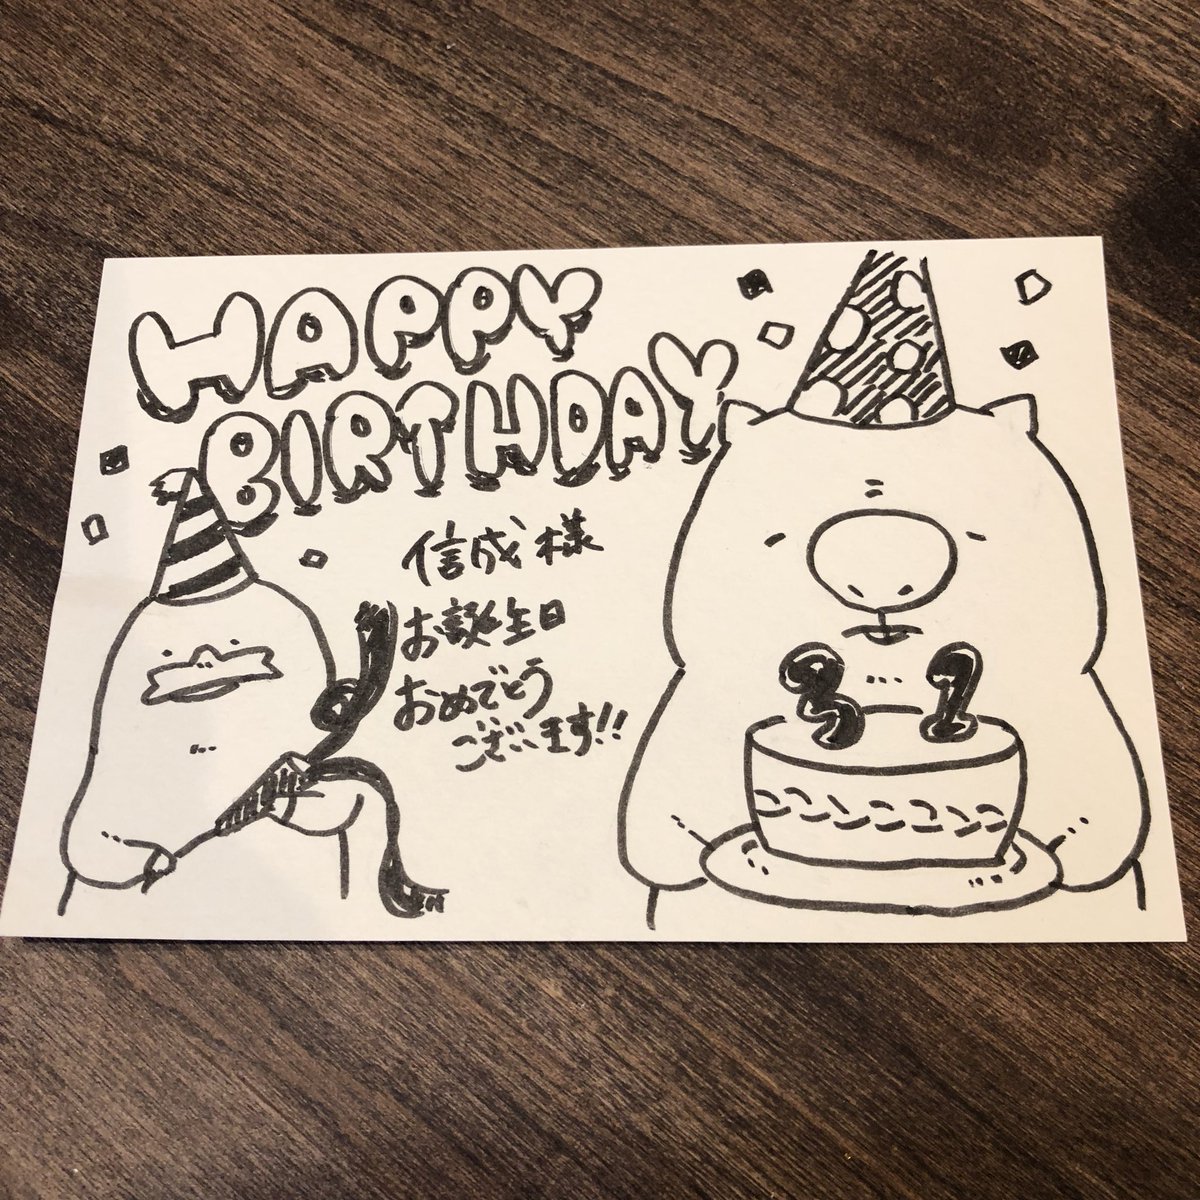 HAPPY
BIRTHDAY
信成様
お誕生日
おめでとう
ございます!!